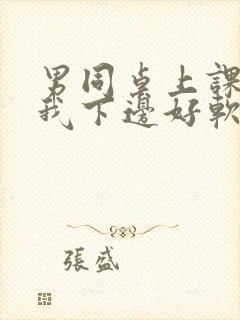 男同桌上課
我下邊好軟
張盛